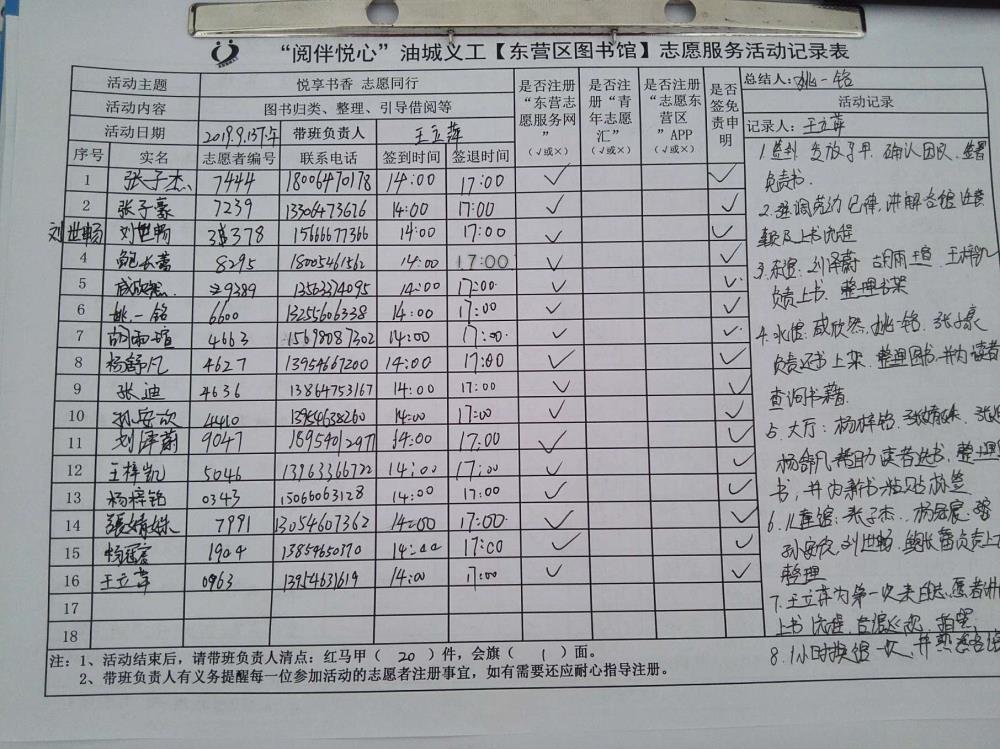 “阅伴悦心”油城义工【东营区图书馆】志愿服务活动记录表
活动主题 悦享书香 志愿同行
活动内容 图书归类、整理、引导借阅等
活动日期 2019.9.15下午 带班负责人 王立萍
是否注册“东营志愿服务网”（√或×）
是否注册“青年志愿汇”（√或×）
是否注册“志愿东营区”APP（√或×）
是否签免责申明
总结人：姚一铭
活动记录
记录人：王立萍
序号 实名 志愿者编号 联系电话 签到时间 签退时间
1 张子杰 7444 18006470178 14:00 17:00 √ √
2 张子豪 7239 13306473676 14:00 17:00 √ √
刘世畅 刘世畅 38378 15666677366 14:00 17:00 √ √
4 鲍长蕾 8295 18005461562 14:00 17:00 √ √
5 成欣然 29389 13563374095 14:00 17:00 √ √
6 姚一铭 6600 13255606338 14:00 17:00 √ √
7 胡雨萱 4663 15698087302 14:00 17:00 √ √
8 杨舒凡 4627 13954667200 14:00 17:00 √ √
9 张迪 4636 13864753167 14:00 17:00 √ √
10 孙安欣 4410 13954638260 14:00 17:00 √ √
11 刘泽蔚 9047 18954012977 14:00 17:00 √ √
12 王梓凯 5046 13963366722 14:00 17:00 √ √
13 杨梓铭 0343 15066063128 14:00 17:00 √ √
14 張婧姝 7991 13054607362 14:00 17:00 √ √
15 1904 13854650370 14:00 17:00 √ √
16 王立萍 0963 13954631619 14:00 17:00 √ √
17
18
1.签到 发放马甲 确认团队 签署
免责书.
2.强调劳动纪律,讲解各馆注意
事项及上书流程
3.东馆:刘泽蔚 胡雨萱 王梓凯
负责上书 整理书架
4.水馆:成欣然,姚一铭,张子豪
负责还书上架 整理图书,并为读者
查询书籍.
5.大厅:杨梓铭 张婧姝
杨舒凡帮助读者选书,整理
书,并为新书粘贴标签
6.儿童馆:张子杰
孙安欣,刘世畅,鲍长蕾负责上
整理
7.王立萍为第一次来的志愿者讲
上书流程,各馆巡视,拍照,
8.1小时换馆一次,并熟悉各馆
注：1、活动结束后，请带班负责人清点：红马甲（ 20 ）件，会旗（ 1 ）面。
2、带班负责人有义务提醒每一位参加活动的志愿者注册事宜，如有需要还应耐心指导注册。